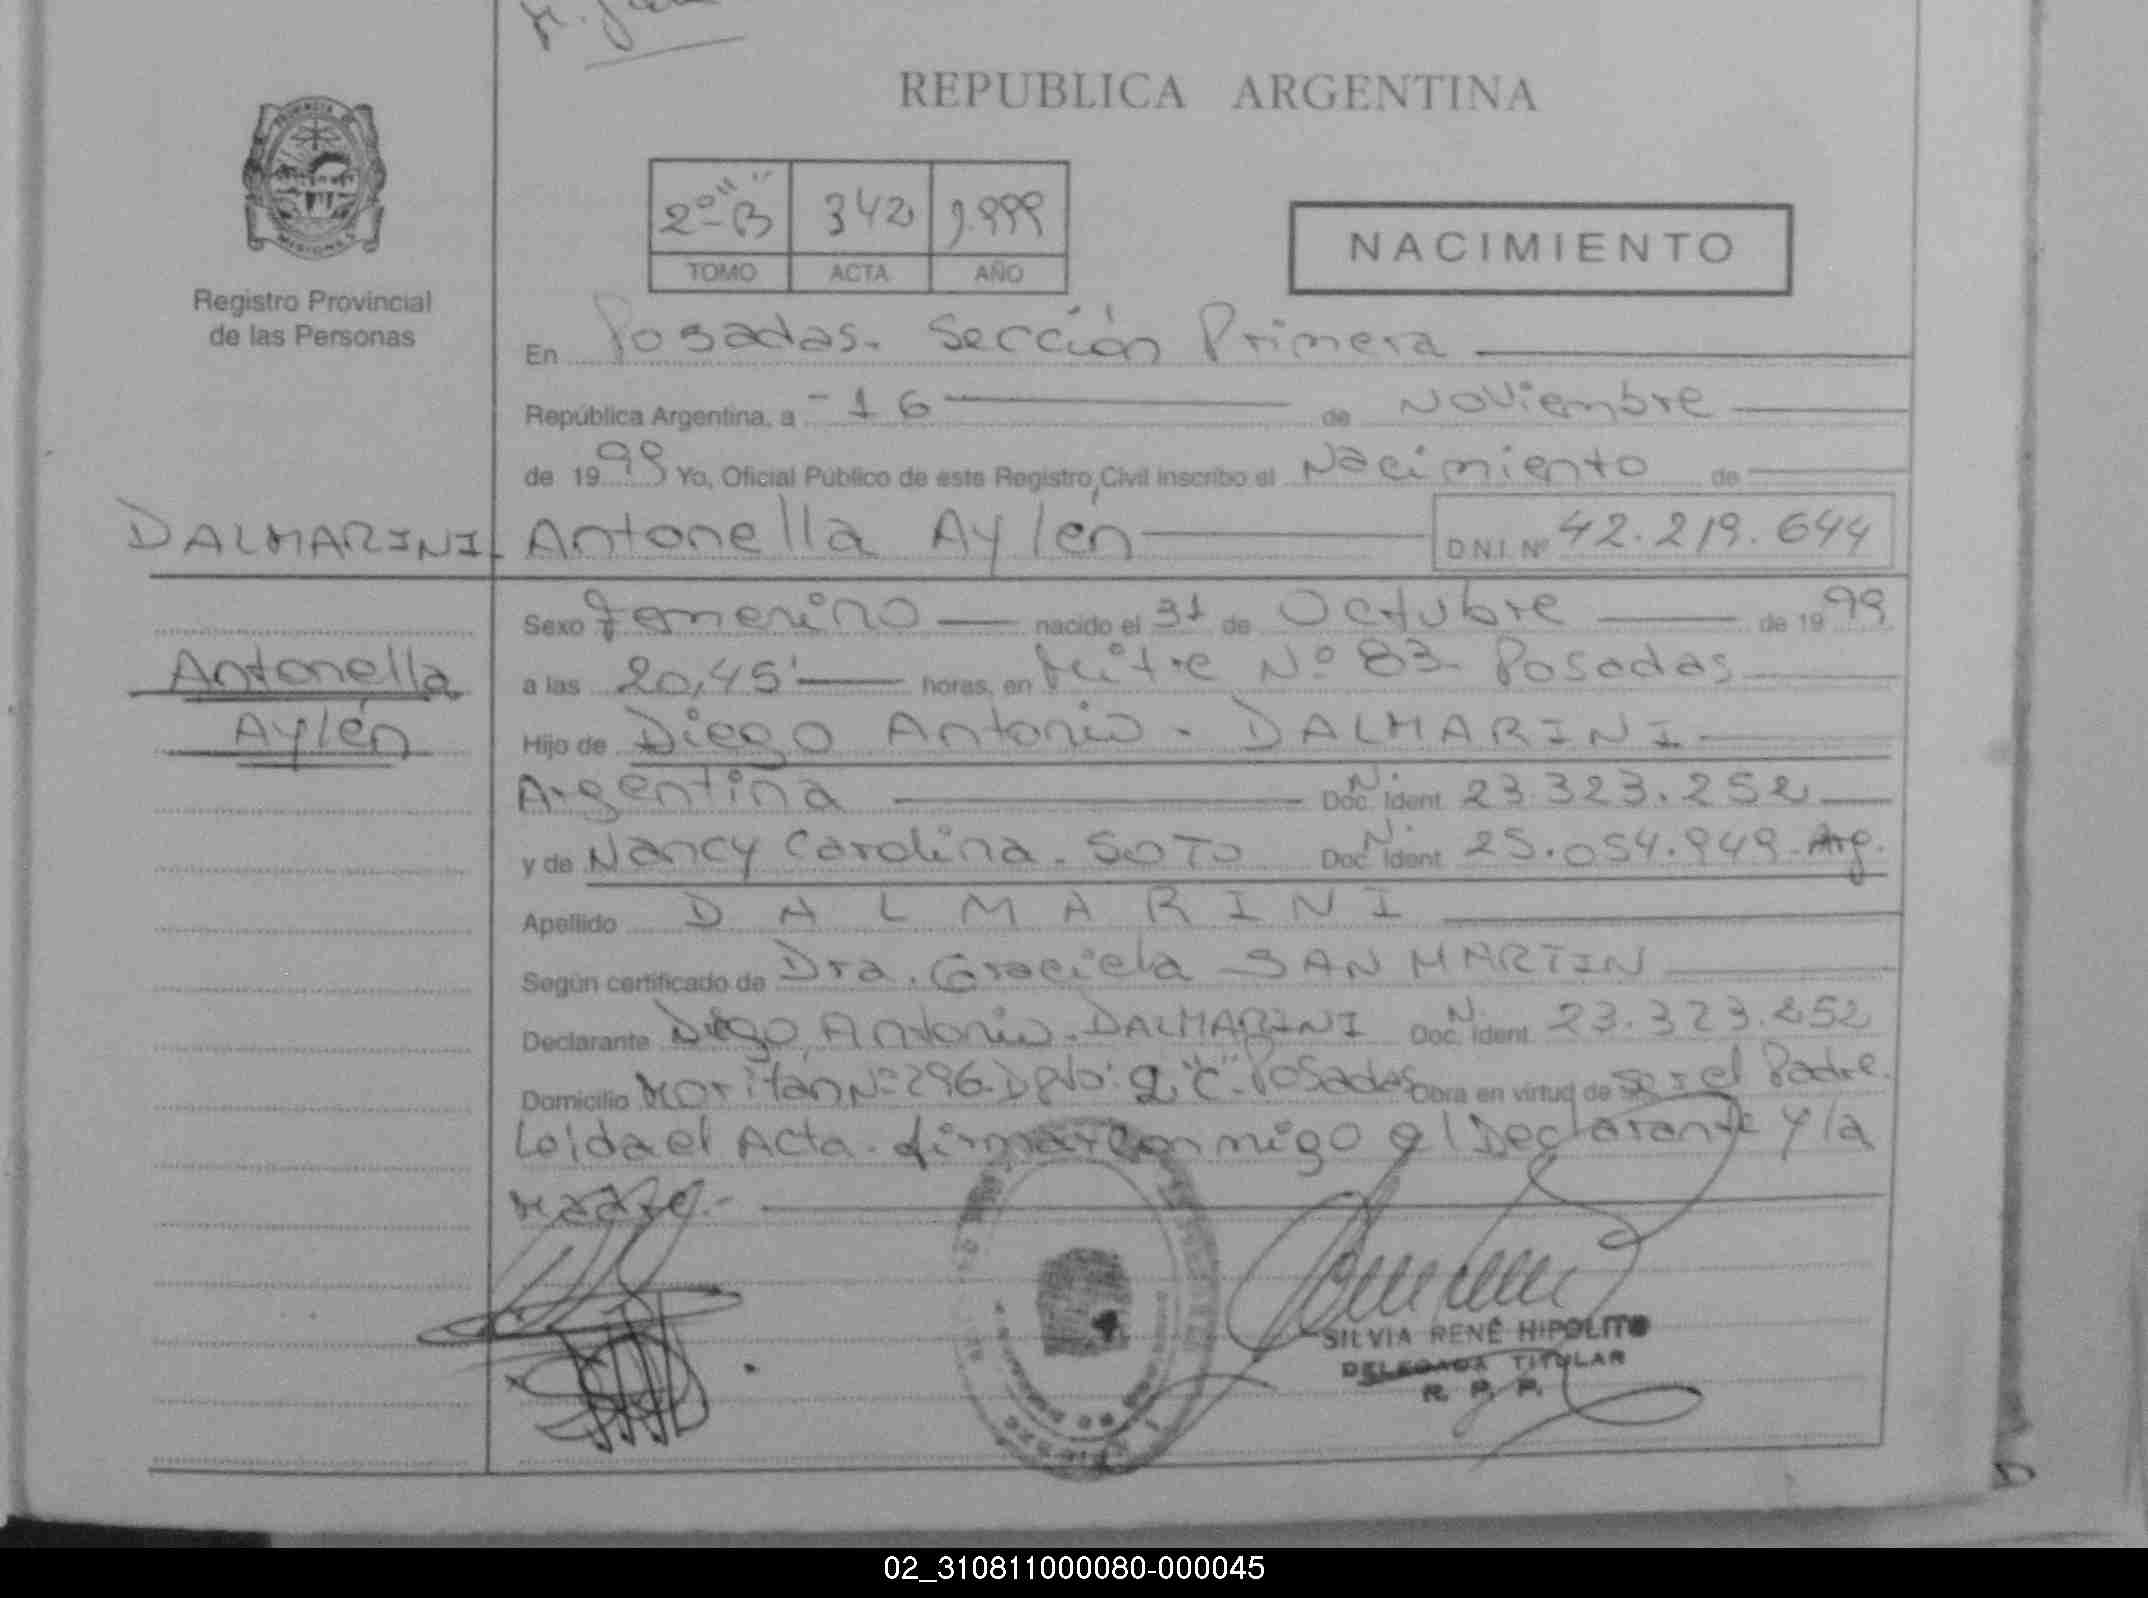 REPUBLICA ARGENTINA
PROVINCIA DE
MISIONES
Registro Provincial
de las Personas
2º "B" 342 1.999
TOMO ACTA AÑO
NACIMIENTO
En Posadas. Sección Primera
República Argentina, a - 16 de Noviembre
de 1999 Yo, Oficial Público de este Registro Civil inscribo el Nacimiento de
DALMARINI Antonella Aylén D.N.I. Nº 42.219.644
Sexo femenino nacido el 31 de Octubre de 1999
Antonella
Aylén
a las 20,45' horas, en Mitre Nº 83- Posadas
Hijo de Diego Antonio - DALMARINI
Argentina Doc. Ident. N. 23.323.252
y de Nancy Carolina. SOTO Doc. Ident. N. 25.054.949-Arg.
Apellido DALMARINI
Según certificado de Dra. Graciela SAN MARTIN
Declarante Diego Antonio. DALMARINI Doc. Ident. N. 23.323.252
Domicilio Nº 296. Dpto: 2 "C". Posadas Obra en virtud de ser el Padre.
Leida el Acta. firman conmigo el Declarante y la
Madre.-
SILVIA RENÉ HIPOLITO
DELEGADA TITULAR
R. P. P.
02_310811000080-000045